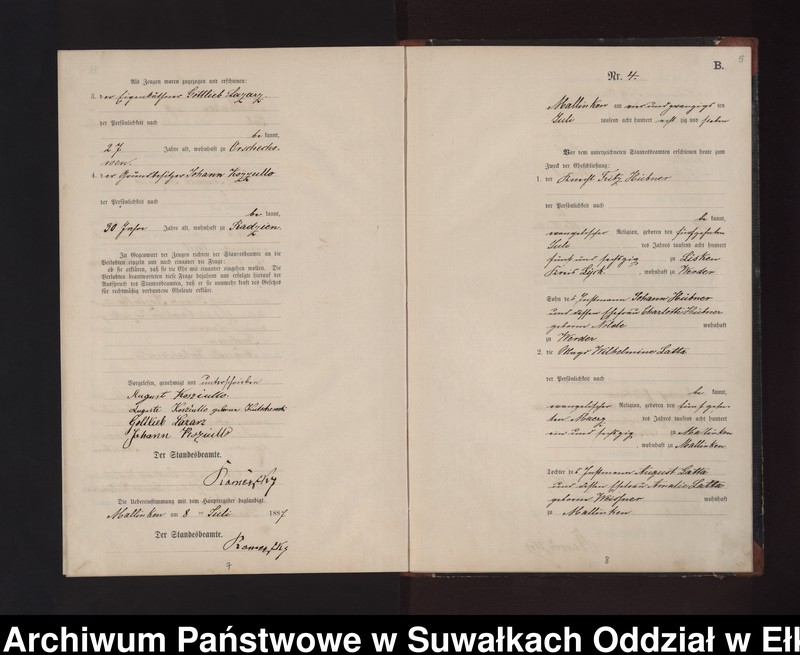 Als Zeugen waren zugezogen und erschienen:
3. der Eigenkäthner Gottlieb Lazarz
der Persönlichkeit nach
be kannt,
27 Jahre alt, wohnhaft zu
4. der Grundbesitzer Johann Kozziullo
der Persönlichkeit nach
be kannt,
30 Jahre alt, wohnhaft zu Radzien.
In Gegenwart der Zeugen richtete der Standesbeamte an die
Verlobten einzeln und nach einander die Frage:
ob sie erklären, daß sie die Ehe mit einander eingehen wollen. Die
Verlobten beantworteten diese Frage bejahend und erfolgte hierauf der
Ausspruch des Standesbeamten, daß er sie nunmehr kraft des Gesetzes
für rechtmäßig verbundene Eheleute erkläre.
Vorgelesen, genehmigt und unterschrieben
August Kozziullo
Auguste Kozziullo geborne
Gottlieb Lazarz
Johann Kozziullo
Der Standesbeamte.
Die Uebereinstimmung mit dem Hauptregister beglaubigt.
Mallinken am 8 ten Juli 1887
Der Standesbeamte.
7
B.
Nr. 4.
Mallinken am vier und zwanzigs ten
Juli tausend acht hundert acht zig und sieben
Vor dem unterzeichneten Standesbeamten erschienen heute zum
Zweck der Eheschließung:
1. der Knecht Fritz Hübner
der Persönlichkeit nach
be kannt,
evangelischer Religion, geboren den fünfzehnten
Juli des Jahres tausend acht hundert
fünf und sechszig zu Lisken
Kreis Lyck, wohnhaft zu Werder
Sohn des Instmann Johann Hübner
und dessen Ehefrau Charlotte Hübner
geborne Nolde wohnhaft
zu Werder
2. die Magd Wilhelmine Latta
der Persönlichkeit nach
be kannt,
evangelischer Religion, geboren den fünfzehn-
ten Maerz des Jahres tausend acht hundert
ein und sechszig zu Mallinken
, wohnhaft zu Mallinken
Tochter des Instmann August Latta
und dessen Ehefrau Amalie Latta
geborne Meissner wohnhaft
zu Mallinken
8
Archiwum Państwowe w Suwałkach Oddział w Ełk